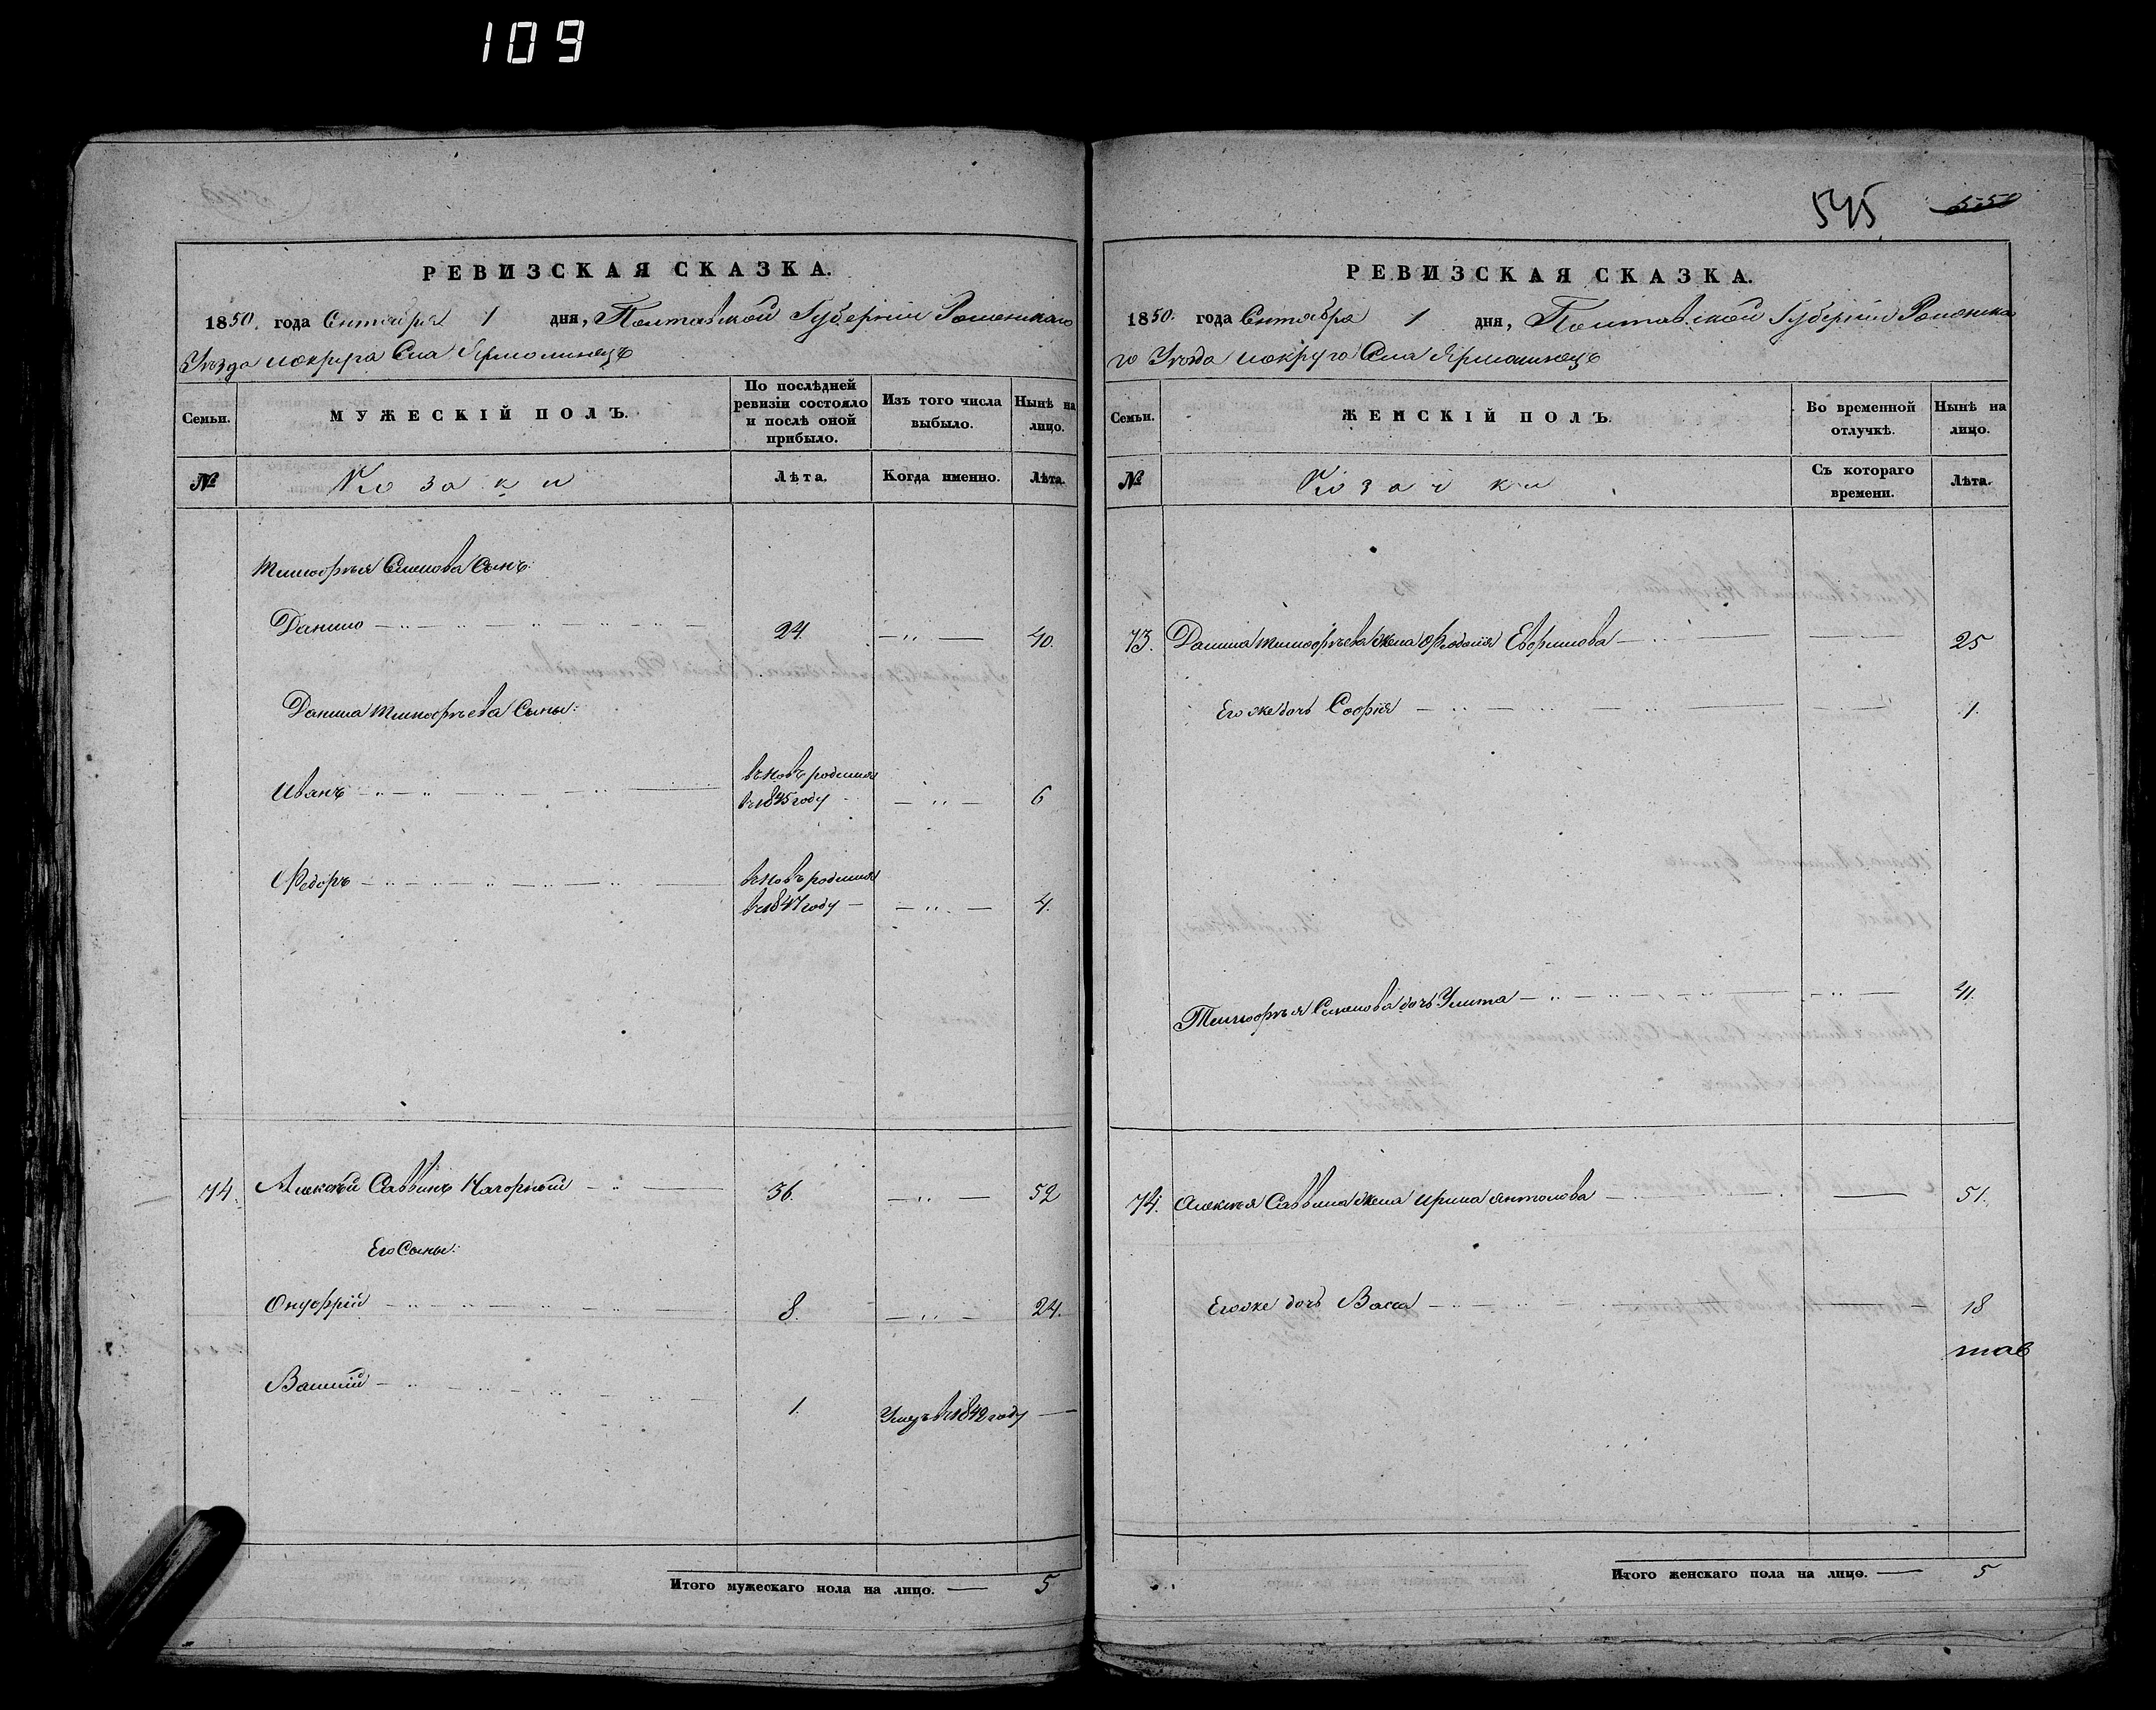 109
РЕВИЗСКАЯ СКАЗКА.
1850. года Сентября 1 дня, Полтавской Губернии Роменскаго
Уезда и округа Села Ярмолинецъ
Семьи.
МУЖЕСКІЙ ПОЛЪ.
По послѣдней
ревизіи состояло
и послѣ оной
прибыло.
Изъ того числа
выбыло.
Нынѣ на
лицо.
№
Козаки
Лѣта.
Когда именно.
Лѣта.
Тимофѣя Семенова Сынъ:
Данило 24. 40.
Данила Тимофѣева Сыны:
Иванъ
вновь родился
въ 1845 году
6
Федоръ
вновь родился
въ 1847 году
4.
74. Алексѣй Саввинъ Нагорный 36. 52
Его Сыны:
Онуфрій 8. 24.
Василій 1. Умеръ въ 1842 году
Итого мужескаго пола на лицо. 5
545 550
РЕВИЗСКАЯ СКАЗКА.
1850. года Сентября 1 дня, Полтавской Губерніи Роменска
го Уезда и округа Села Ярмолинецъ
Семьи.
ЖЕНСКІЙ ПОЛЪ.
Во временной
отлучкѣ.
Нынѣ на
лицо.
№
Козачки
Съ котораго
времени.
Лѣта.
73. Данила Тимофѣева жена Феодосія Евфимова 25
Его же дочь Софія 1.
Тимофѣя Семенова дочь Улита 41.
74. Алексѣя Саввина жена Ирина Антонова 51.
Его же дочь Васса 18
тав
Итого женскаго пола на лицо. 5